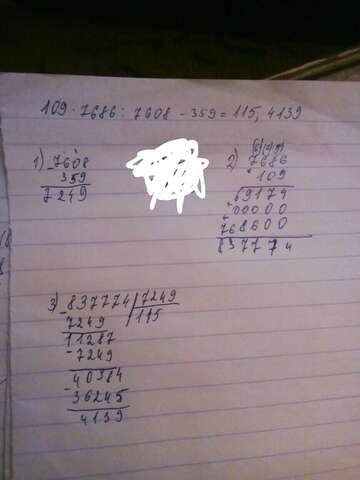 109 · 7686 : 7608 - 359 = 115, 4139
1) - 7608
359
7249
2) 7686
109
69174
00000
768600
837774
3) - 837774 | 7249
7249 | 115
11287
- 7249
40384
- 36245
4139